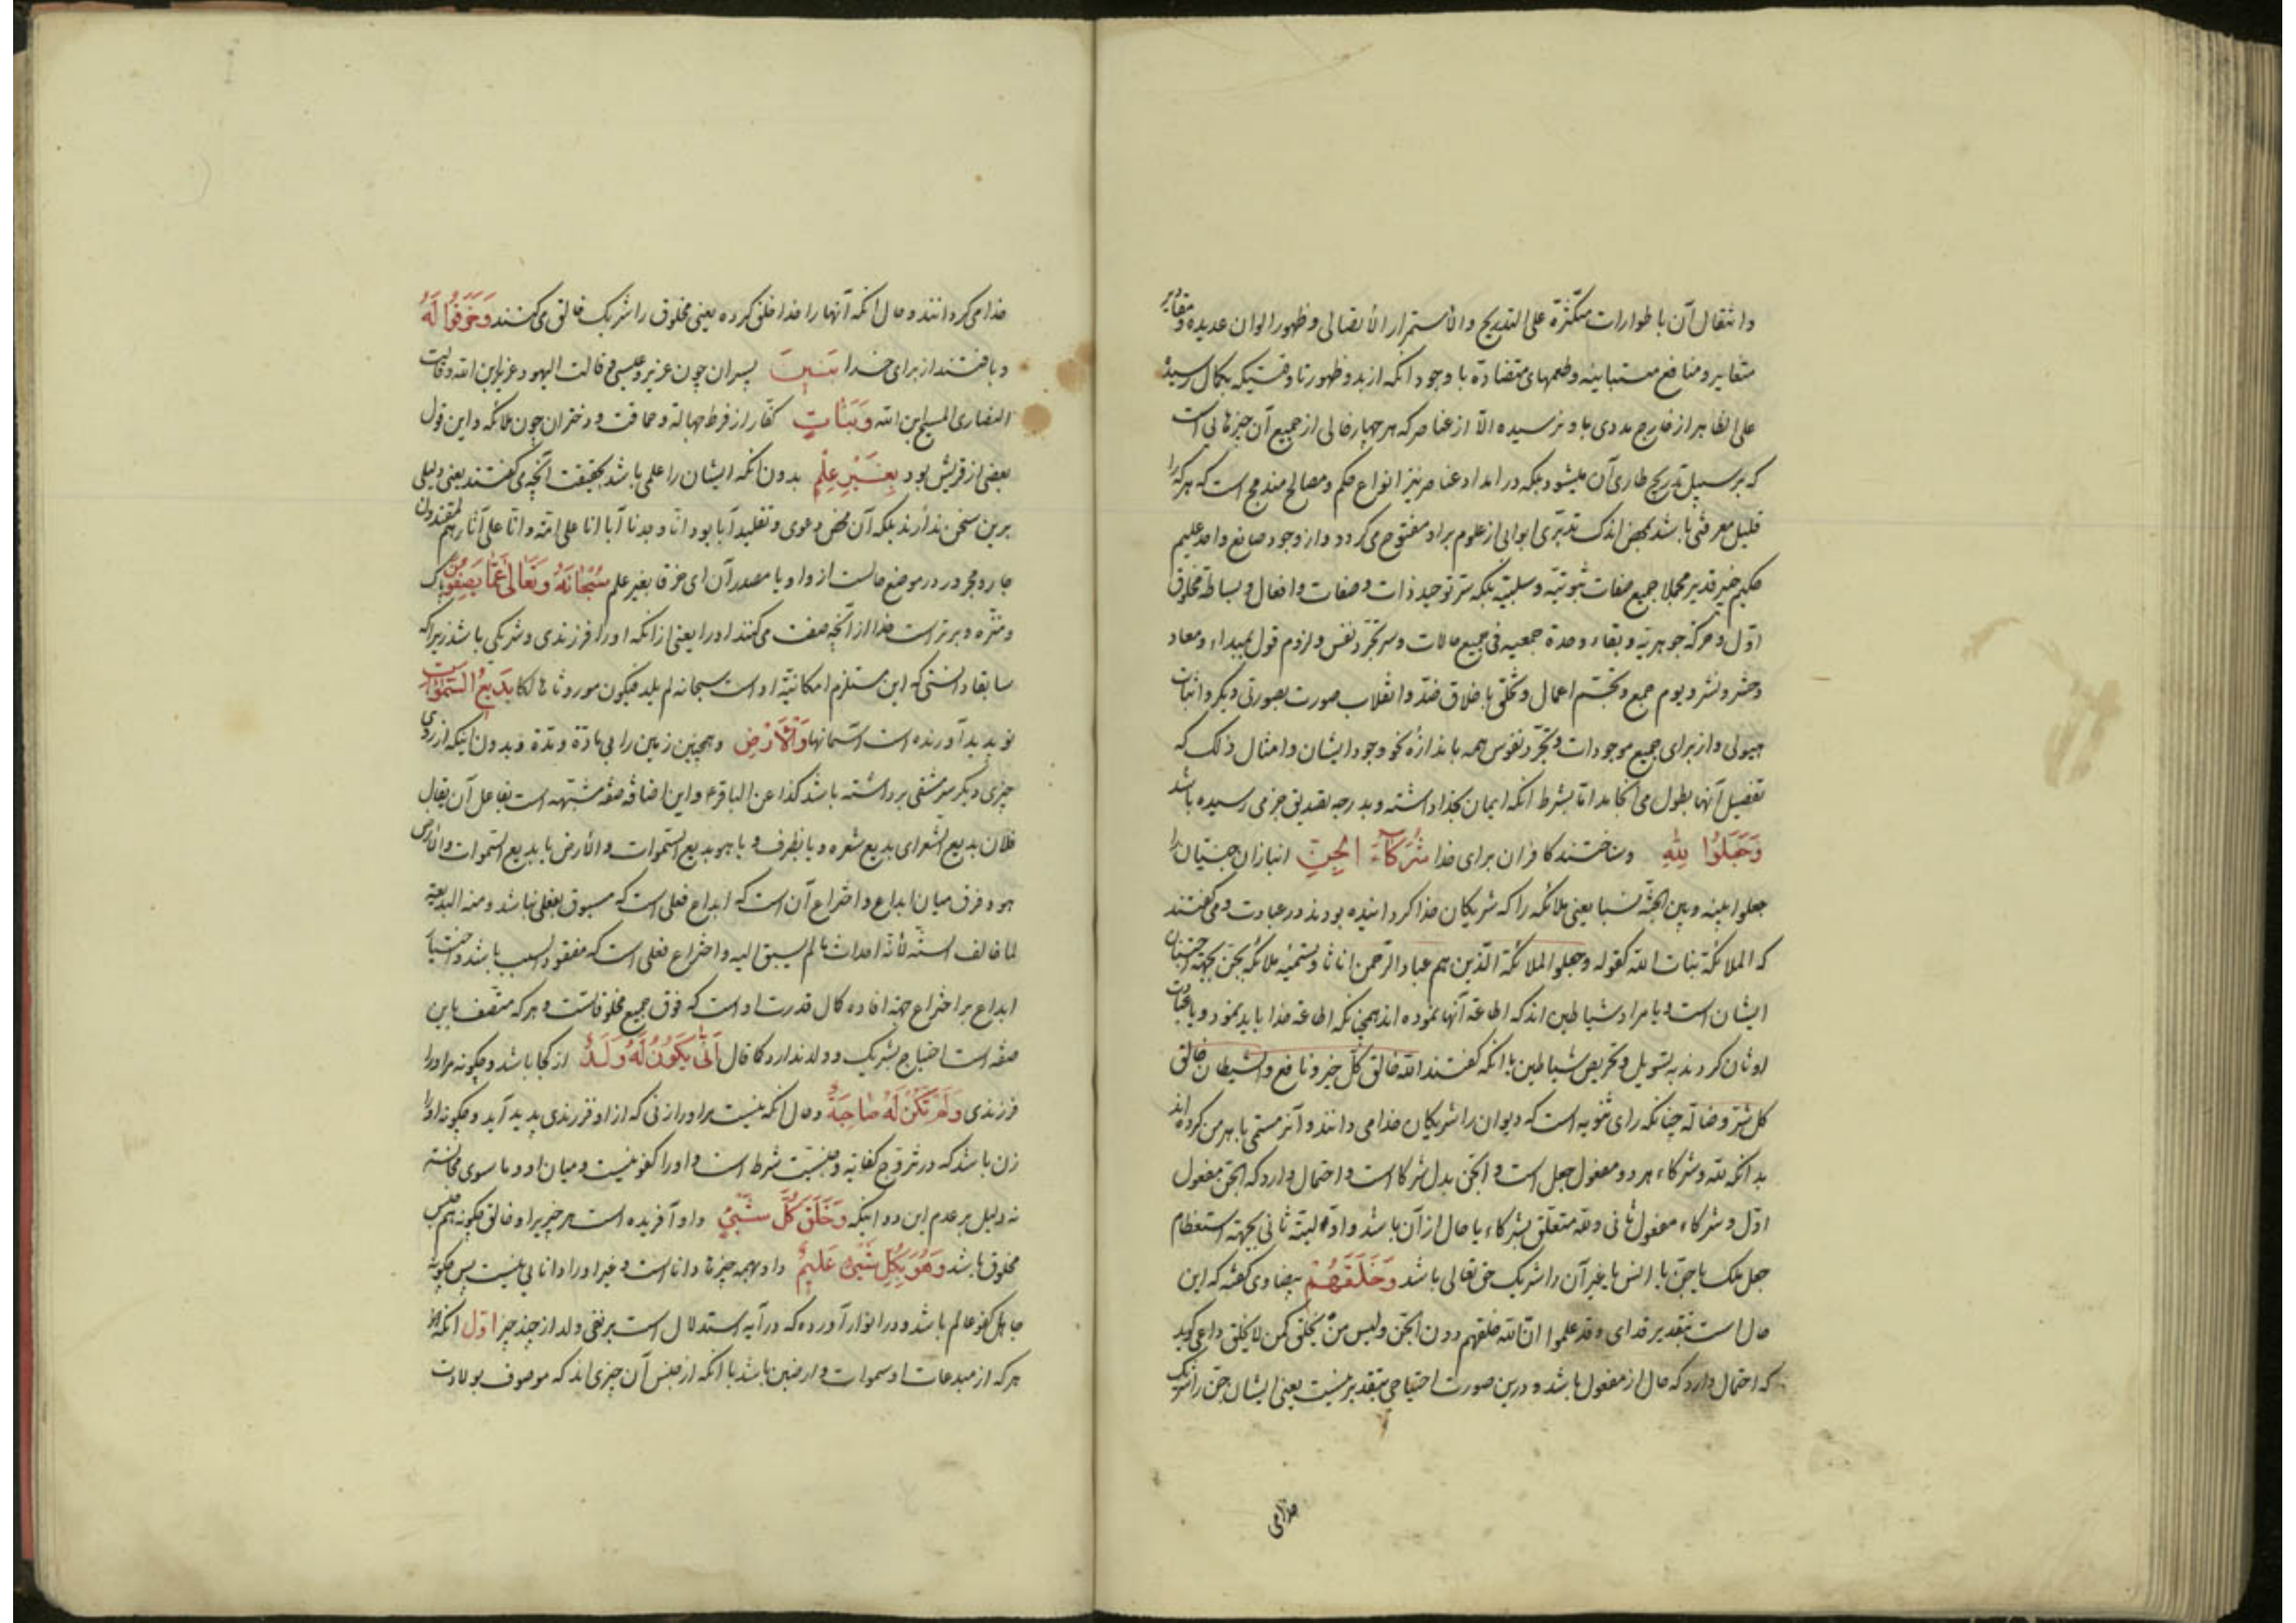 وانتقال آن باطوارات متکثرة علی التدریج والاستمرار الاتصالی وظهور الوان عدیده و مقادیر
متغایر و منافع متباینه وطعمهای متضادة با وجود آنکه از بدو ظهور تا وقتیکه بکمال رسید
علی الظاهر از خارج مددی باو نرسیده الّا از عناصر که هر چهار خالی از جمیع آن چیزها است
که بر سبیل تدریج طاری آن میشود بلکه در امداد عناصر نیز انواع حکم و مصالح مندمج است که هرکه را
قلیل معرفتی باشد بمحض اندک تدبّری ابوابی از علوم براو مفتوح می کردد و از وجود صانع واحد علیم
حکیم خبیر قدیر مجملا جمیع صفات ثبوتیّه و سلبیّه بلکه سرّ توحید ذات و صفات و افعال و بساطة مخلوق
اوّل و حرکة جوهریّه و بقاء وحدة جمعیه فی جمیع حالات و سر تجرّد نفس و لزوم قول بمبداء و معاد
و حشر و نشر و یوم جمع و تجسّم اعمال و تخلّق باخلاق ضدّ و انقلاب صورت بصورتی دیکر و اثبات
هیولی و از برای جمیع موجودات و تجرّد نفوس همه باندازهٔ نحو وجود ایشان و امثال ذلک که
تفصیل آنها بطول می انجامد امّا بشرط آنکه ایمان بخدا داشته و بدرجه تصدیق جزمی رسیده باشد
وَجَعَلُوا لِلّهِ وساختند کافران برای خدا شُرَکَآءَ الْجِنَّ انبازان جنّیان را
جعلوا بینه و بین الجنّة نسبا یعنی ملائکه را که شریکان خدا کردانیده بودند در عبادت و می کفتند
که الملائکة بنات اللّه کقوله وجعلوا الملائکة الّذین هم عباد الرّحمن اناثا و تسمیهٔ ملائکه بجن بجهة اجتنان
ایشان است و یا مراد شیاطین اند که اطاعة آنها نموده اند همچنانکه اطاعة خدا باید نمود و یا عبادت
اوثان کردند به تسویل و تحریص شیاطین یا آنکه کفتند اللّه خالق کلّ خیر و نافع والشیطان خالق
کل شرّ و ضارّ چنانکه رای ثنویه است که دیوان را شریکان خدا می دانند و آنرا مسمّی باهرمن کرده اند
بدانکه للّه و شرکاء هر دو مفعول جعل است و الجنّ بدل شرکا است و احتمال دارد که الجن مفعول
اوّل و شرکاء مفعول ثانی و للّه متعلّق بشرکاء یا حال از آن باشد و اوّل البتّه ثانی بجهة استعظام
جعل ملک یا جنّ یا انس یا غیر آن را شریک حق تعالی باشد وَخَلَقَهُمْ بیضاوی کفته که این
حال است بتقدیر قد ای وقد علموا انّ اللّه خلقهم دون الجنّ ولیس من یخلق کمن لا یخلق داعی کوید
که احتمال دارد که حال از مفعول باشد و درین صورت احتیاجی بتقدیر نیست یعنی ایشان جن را شریک
خدا می
خدا می کردانند و حال آنکه آنها را خدا خلق کرده یعنی مخلوق را شریک خالق می کنند وَخَرَقُوا لَهُ
و بافتند از برای خدا بَنینَ پسران چون عزیر و عیسی ع قالت الیهود عزیر ابن اللّه و قالت
النصاری المسیح ابن اللّه وَبَنَاتٍ کفّار از فرط جهالة و حماقت و دختران چون ملائکه و این قول
بعضی از قریش بود بِغَیْرِ عِلْمٍ بدون آنکه ایشان را علمی باشد بحقیقت آنچه می کفتند یعنی دلیلی
برین سخن ندارند بلکه آن محض دعوی و تقلید آبا بود انّا وجدنا آباءنا علی امّة وانّا علی آثارهم لمقتدون
جار و مجرور در موضع حالست از واو یا مصدر آن ای خرقا بغیر علم سُبْحَانَهُ وَتَعَالی عَمَّا یَصِفُونَ پاک
و منزّه و برتر است خدا از آنچه صفت می کنند او را یعنی از آنکه او را فرزندی و شریکی باشد زیرا که
سابقا دانستی که این مستلزم امکانیّة او است سبحانه لم یلد فیکون موروثا هالکا بَدیعُ السَّمٰوَاتِ
نو پدید آورنده است آسمانها وَالْاَرْضِ وهمچنین زمین را بی مادّة و مدّة و بدون اینکه از روی
چیزی دیکر سرمشقی برداشته باشد کذا عن الباقر ع و این اضافه صفة مشبّهه است بفاعل آن یقال
فلان بدیع الشعر ای بدیع شعره و یا بظرف و یا هو بدیع السّموات والارض یا بدیع السّموات والارض
هو و فرق میان ابداع و اختراع آن است که ابداع فعلی است که مسبوق بفعلی نباشد و منه البدعة
لما خالف السنّه لانّه احداث ما لم یسبق الیه و اختراع فعلی است که مفقود السبب باشد و اختیار
ابداع بر اختراع جهة افاده کمال قدرت او است که فوق جمیع مخلوقاتست و هر که متّصف باین
صفة است احتیاج بشریک و ولد ندارد کما قال اَنّٰی یَکُونُ لَهُ وَلَدٌ از کجا باشد و چکونه مر او را
فرزندی وَلَمْ تَکُنْ لَهُ صَاحِبَةٌ و حال آنکه نیست مر او را زنی که از او فرزندی پدید آید و چکونه او را
زن باشد که در تزوّج کفایة و جنسیّت شرط است و او را کفو نیست و میان او و ما سوی مجانسة
نه و دلیل بر عدم این دو اینکه وَخَلَقَ کُلَّ شَیْءٍ و او آفریده است هر چیزیرا و خالق چکونه هم جنس
مخلوق باشد وَهُوَ بِکُلِّ شَیْءٍ عَلیمٌ و او بهمه چیزها دانا است و غیر او را دانایی نیست پس چکونه
جاهل کفو عالم باشد و در انوار آورده که در آیه استدلال است بر نفی ولد از چند چیز اوّل آنکه
هر که از مبدعات او سموات و ارضین باشد با آنکه از جنس آن چیزی اند که موصوف بولادت